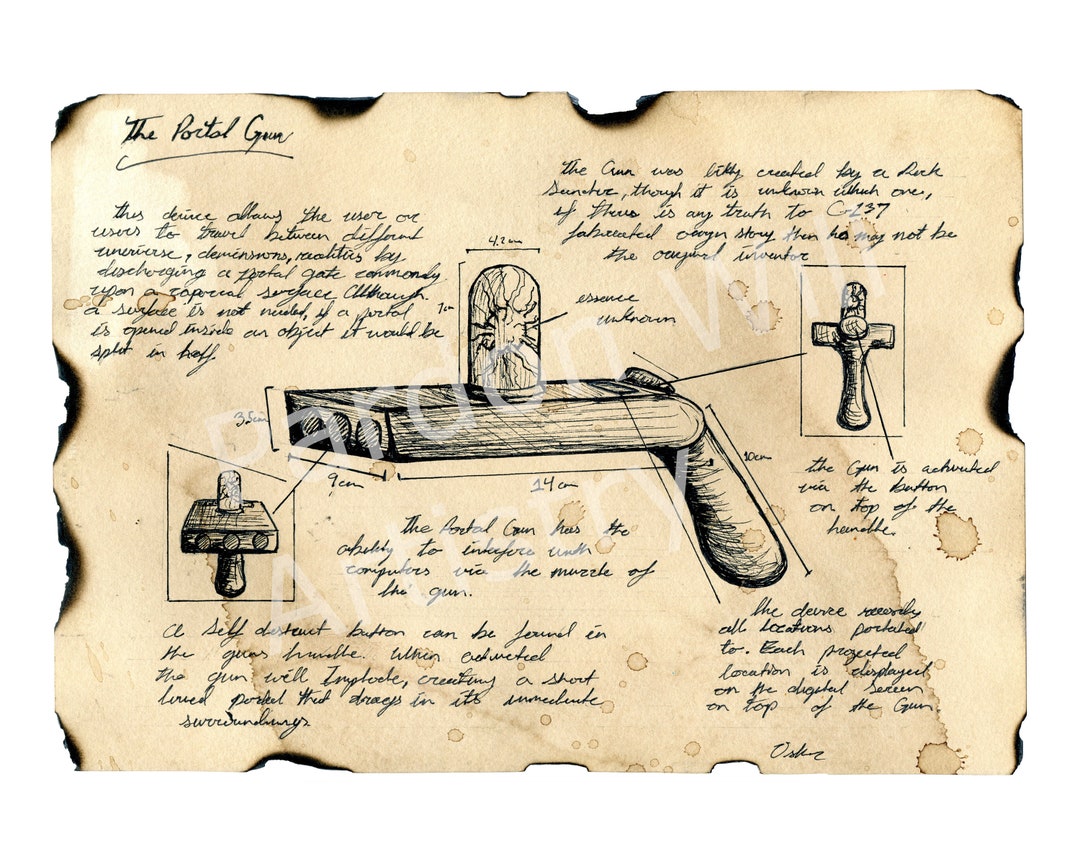 The Portal Gun
this device allows the user or
users to travel between different
universe, demensions, realities by
discharging a portal gate commonly
upon a vaporial surface Although
a surface is not needed, if a portal
is opened inside an object it would be
split in half.
the Gun was likly created by a Rick
Sanchez, though it is unknown which one,
if there is any truth to C-137
fabricated oragin story then he may not be
the original inventor
4.2cm
7cm
essence
unknown
3.5cm
9cm
14cm
10cm
the Gun is activated
via the button
on top of the
handle.
The Portal Gun has the
ability to interface with
computers via the muzzle of
the gun.
A Self destruct button can be found in
the guns handle. When activated
the gun will Implode, creating a short
lived portal that drags in its immediate
surroundings
the device records
all locations portaled
to. Each projected
location is displayed
on the digital screen
on top of the Gun.
Pardon Will
Artistry